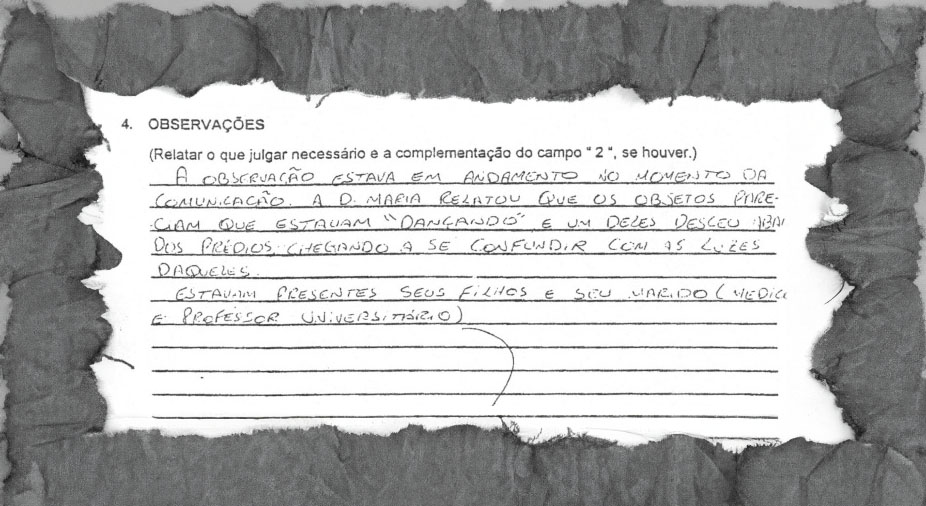 4. OBSERVAÇÕES
(Relatar o que julgar necessário e a complementação do campo " 2 ", se houver.)
A OBSERVAÇÃO ESTAVA EM ANDAMENTO NO MOMENTO DA
COMUNICAÇÃO. A D. MARIA RELATOU QUE OS OBJETOS PARE-
CIAM QUE ESTAVAM "DANÇANDO" E UM DELES DESCEU
DOS PRÉDIOS, CHEGANDO A SE CONFUNDIR COM AS LUZES
DAQUELES.
ESTAVAM PRESENTES SEUS FILHOS E SEU MARIDO (MEDIC
E PROFESSOR UNIVERSITÁRIO)